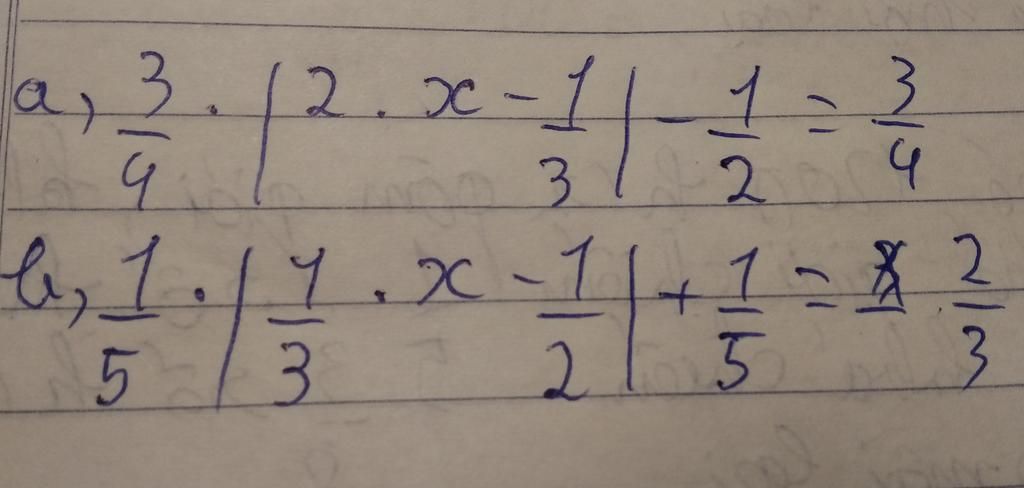 a, 3/4 . | 2 . x - 1/3 | - 1/2 = 3/4
b, 1/5 . | 1/3 . x - 1/2 | + 1/5 = 2/3